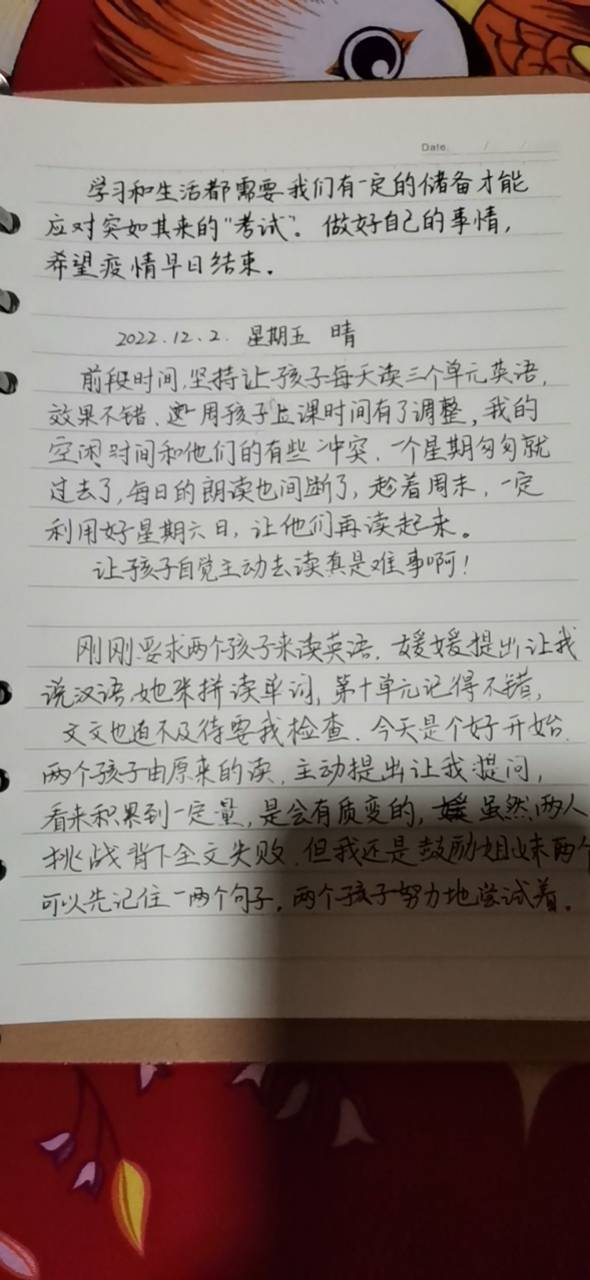 Date. / /
学习和生活都需要我们有一定的储备才能
应对突如其来的“考试”。做好自己的事情,
希望疫情早日结束。
2022.12.2. 星期五 晴
前段时间,坚持让孩子每天读三个单元英语,
效果不错,这周孩子上课时间有了调整,我的
空闲时间和他们的有些冲突,一个星期匆匆就
过去了,每日的朗读也间断了,趁着周末,一定
利用好星期六日,让他们再读起来。
让孩子自觉主动去读真是难事啊!
刚刚要求两个孩子来读英语,媛媛提出让我
说汉语,她来拼读单词,第十单元记得不错,
文文也迫不及待要我检查,今天是个好开始,
两个孩子由原来的读,主动提出让我提问,
看来积累到一定量,是会有质变的,虽然两人
挑战背下全文失败,但我还是鼓励姐妹两个
可以先记住一两个句子,两个孩子努力地尝试着。